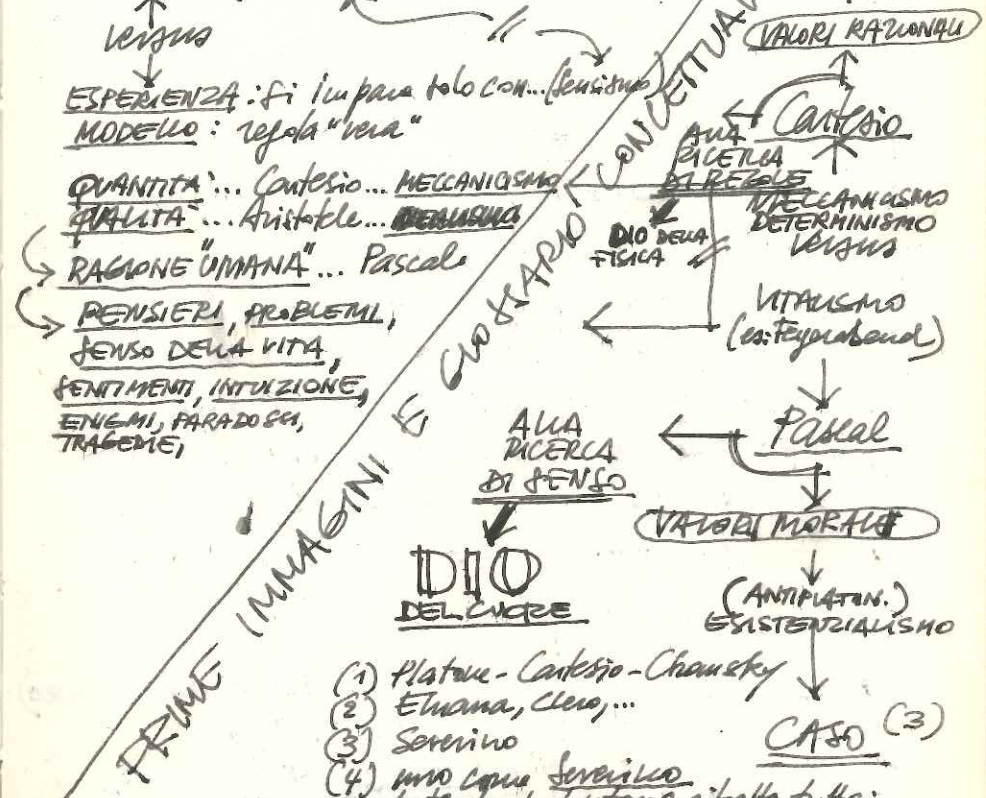 versus
ESPERIENZA : si impara solo con... (sensismo)
MODELLO : regola "vera"
QUANTITA' ... Cartesio ... MECCANICISMO
QUALITA' ... Aristotele ...
RAGIONE "UMANA" ... Pascal
PENSIERI, PROBLEMI,
SENSO DELLA VITA,
SENTIMENTI, INTUIZIONE,
ENIGMI, PARADOSSI,
TRAGEDIE,
PRIME IMMAGINI E GLOSSARIO CONCETTUAL
VALORI RAZIONALI
Cartesio
ALLA
RICERCA
DI REGOLE
DIO DELLA
FISICA
MECCANICISMO
DETERMINISMO
versus
VITALISMO
(es: Feyerabend)
Pascal
ALLA
RICERCA
DI SENSO
DIO
DEL CUORE
VALORI MORALI
(ANTIPLATON.)
ESISTENZIALISMO
CASO (3)
(1) Platone - Cartesio - Chomsky
(2) Eluana, Clero, ...
(3) Severino
(4) uno come Severino